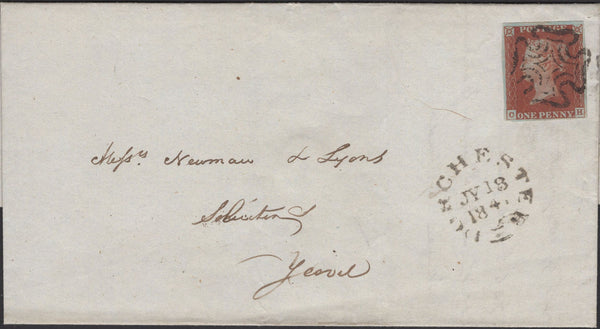 POSTAGE
ONE PENNY
Messrs Newman & Lyons
Solicitors
Yeovil
DORCHESTER
JY 18
184